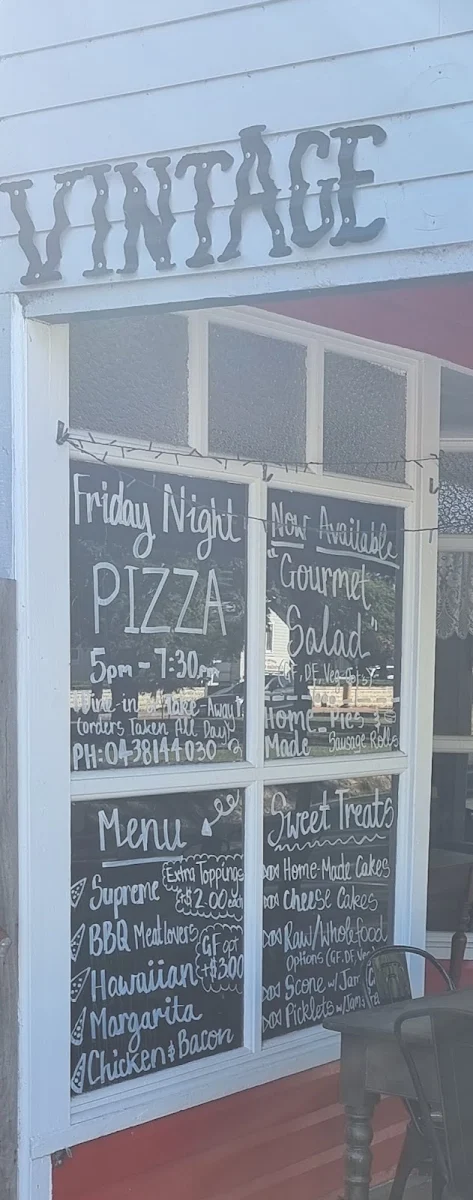 VINTAGE
Friday Night
PIZZA
5pm-7:30pm
Dine-in or Take-Away!
(orders Taken All Day)
PH:0438144030
Now Available
"Gourmet
Salad"
(GF, DF, Veg opts)
Home Pies &
Made Sausage Rolls
Menu
Extra Toppings
+$2.00 each
Supreme
BBQ Meatlovers
GF opt
+$3.00
Hawaiian
Margarita
Chicken & Bacon
Sweet Treats
Home-Made Cakes
Cheese Cakes
Raw/Wholefood
Options (GF, DF, Ve
Scone w/Jam
Picklets w/Jam